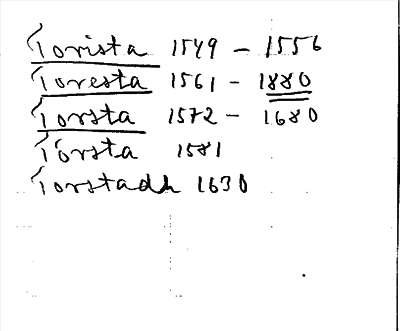 Torista 1549 - 1556
Toresta 1561 - 1880
Torsta 1572 - 1680
Torsta 1581
Torstadh 1630